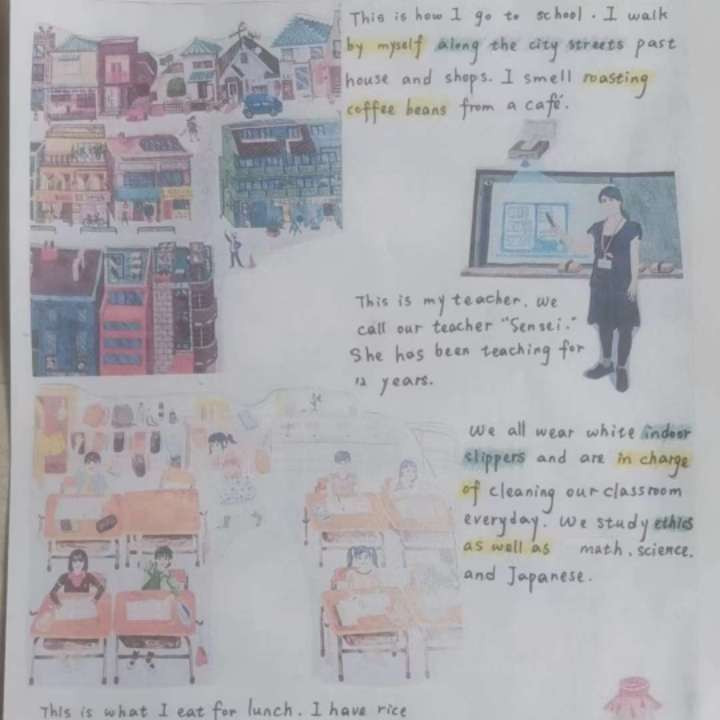 This is how I go to school. I walk
by myself along the city streets past
house and shops. I smell roasting
coffee beans from a café.
This is my teacher. We
call our teacher "Sensei."
She has been teaching for
12 years.
We all wear white indoor
slippers and are in charge
of cleaning our classroom
everyday. We study ethics
as well as math, science,
and Japanese.
This is what I eat for lunch. I have rice